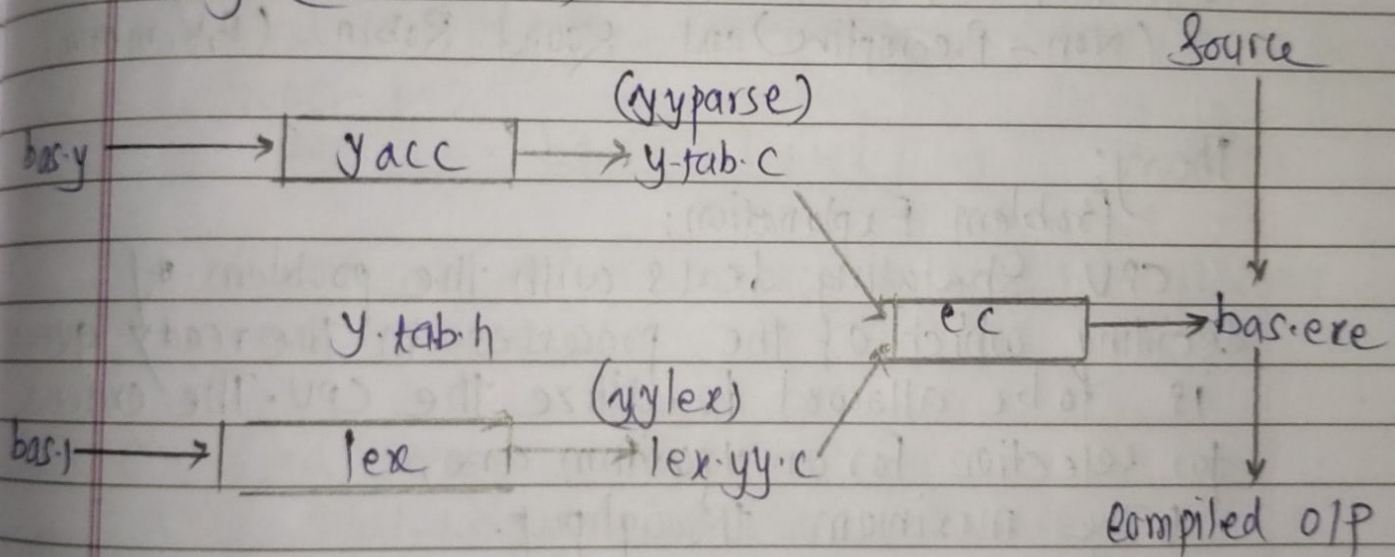 Source
(yyparse)
bas.y yacc y.tab.c
y.tab.h cc bas.exe
(yylex)
bas.l lex lex.yy.c
compiled O/P